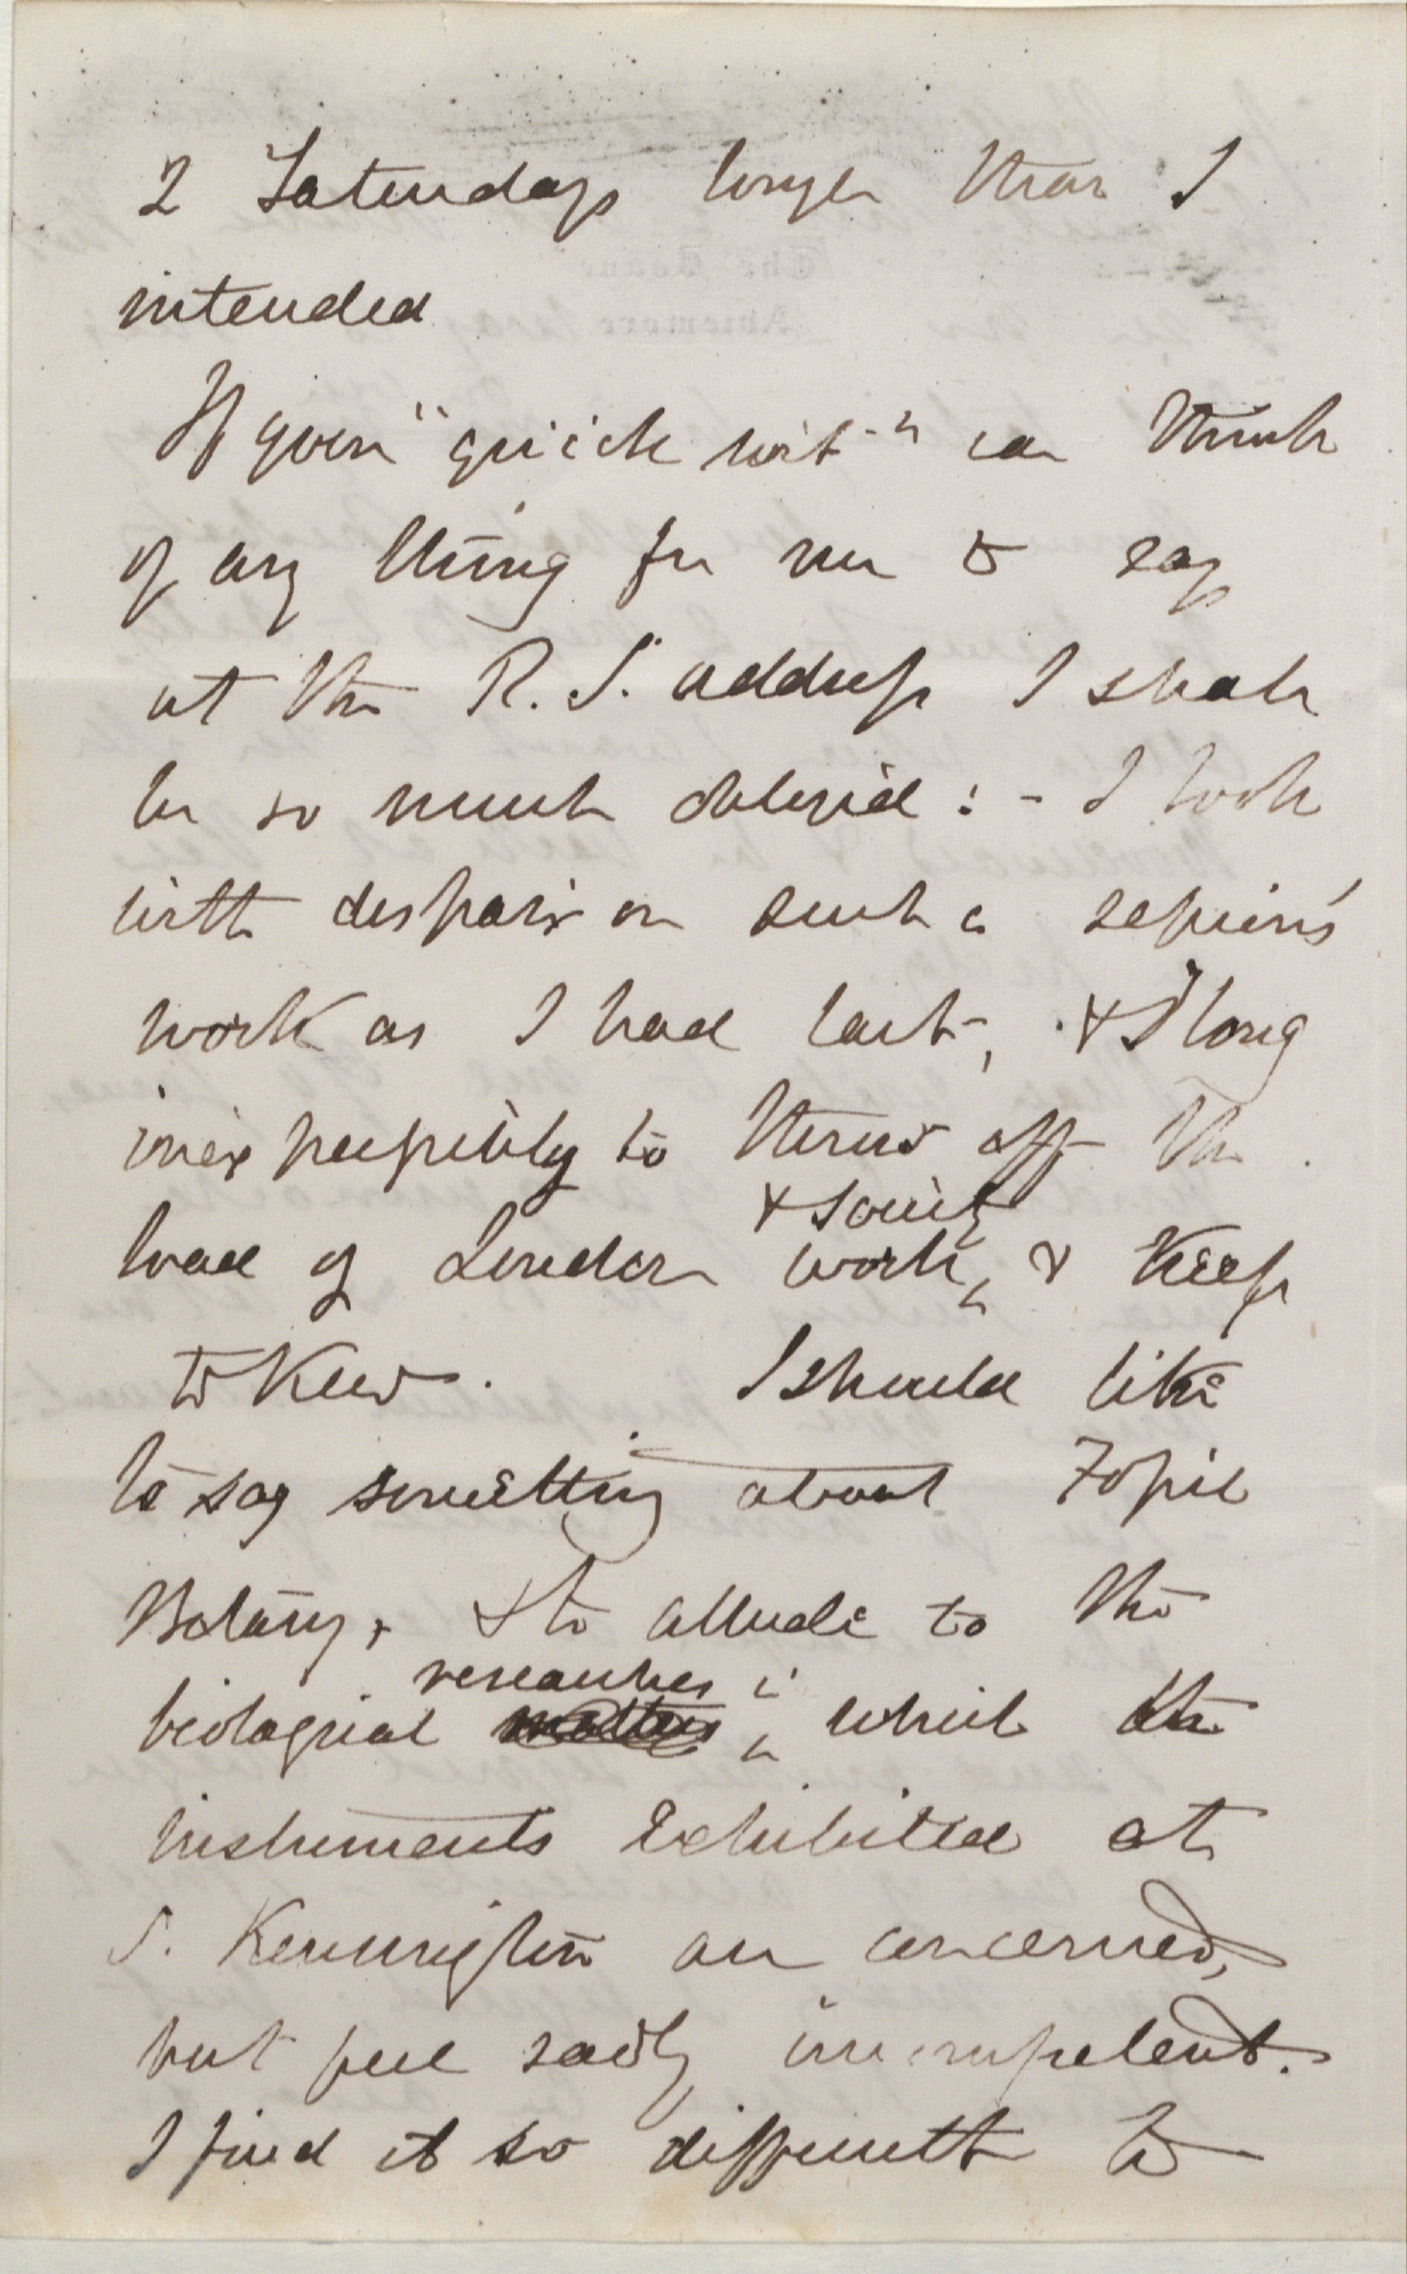 2 Saturdays longer than I
intended
If your "quick wit" can think
of any thing for me to say
at the R. S. address I shall
be so much obliged: - I look
with despair on such a session's
work as I had last, & I long
inexpressibly to throw off the
load of London work & society, & keep
to Kew. I should like
to say something about Fossil
Botany, & to allude to the
biological researches in which the
instruments exhibited at
S. Kensington are concerned,
but feel sadly incompetent.
I find it so difficult to